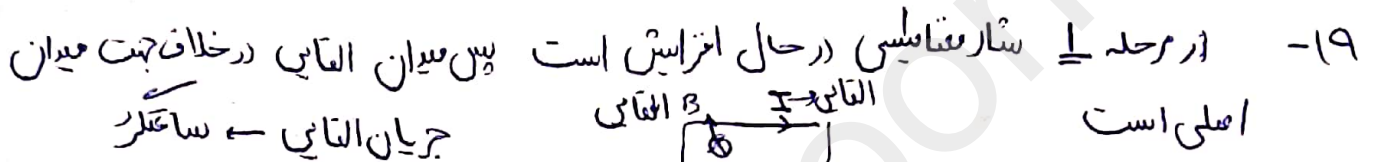 ۱۹- در مرحله 1 شار مغناطیسی در حال افزایش است پس میدان القایی در خلاف جهت میدان
اصلی است
القایی I
B القایی
جریان القایی ← ساعتگرد